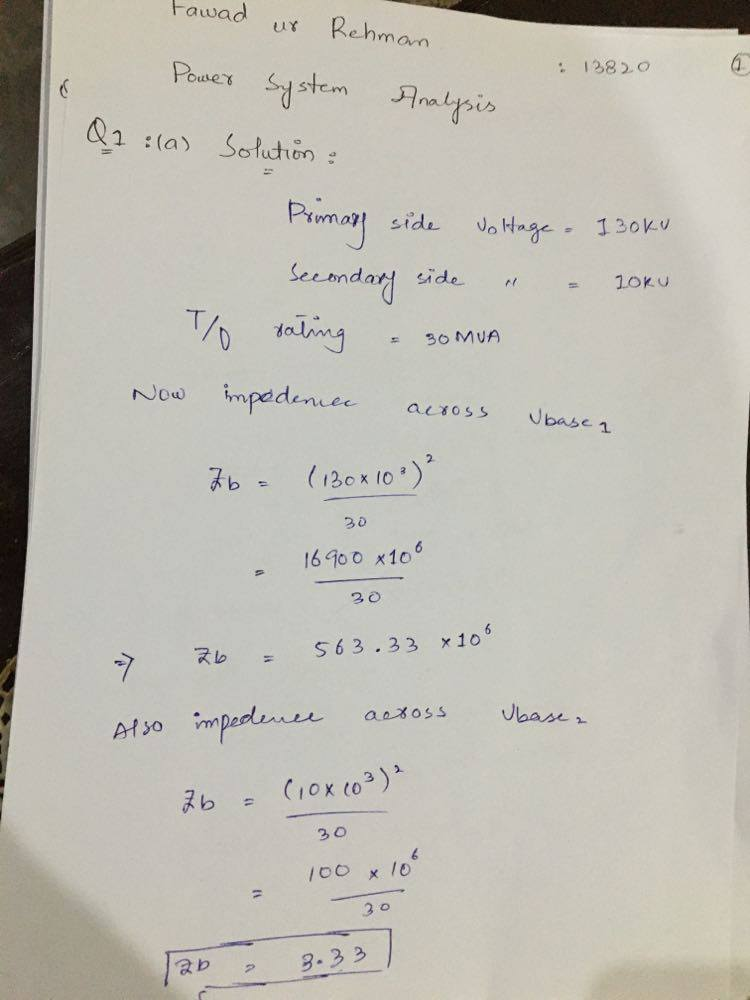 Fawad ur Rehman
: 13820
1
Power System Analysis
Q1 :(a) Solution :
Primary side voltage = 130KV
Secondary side " = 10KV
T/D rating = 30MVA
Now impedencec across Vbase1
Zb = (130×10³)²
30
= 16900 ×10⁶
30
⇒ Zb = 563.33 ×10⁶
Also impedence across Vbase2
Zb = (10×10³)²
30
= 100 × 10⁶
30
Zb = 3.33